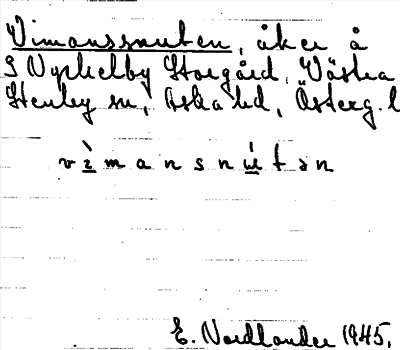 Vimanssnuten, åker å
S Nyckelby Storgård, Västra
Stenby sn, Aska hd, Österg. l
v ì m a n s n ú t ə n
E. Nordlander 1945.